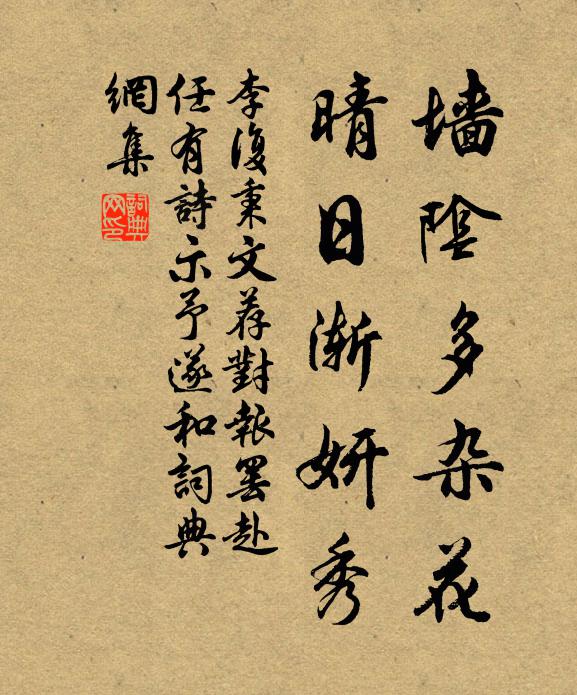 墙陰多杂花
晴日渐妍秀
李復秉文荐對報罢赴
任有詩示予遂和詞典
網集
詞典网印